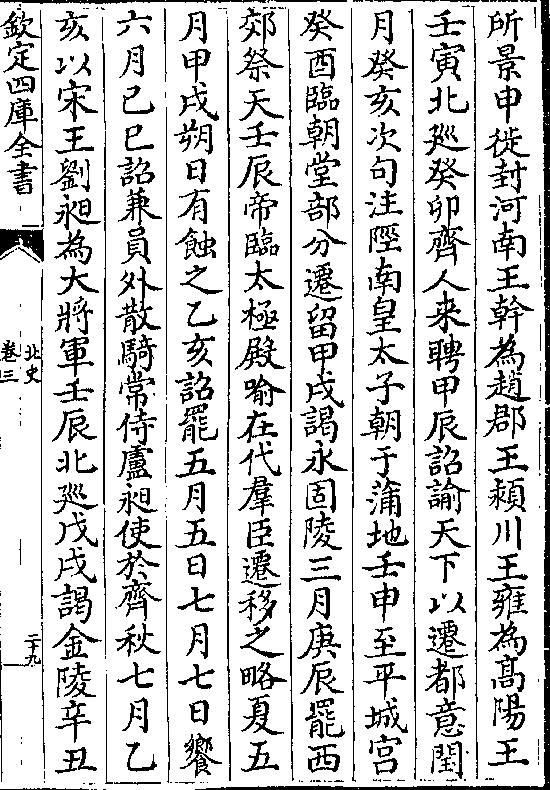 所景申徙封河南王幹為趙郡王潁川王雍為髙陽王
壬寅北廵癸卯齊人来聘甲辰詔諭天下以遷都意閏
月癸亥次句注陘南皇太子朝于蒲地壬申至平城宫
癸酉臨朝堂部分遷留甲戌謁永固陵三月庚辰罷西
郊祭天壬辰帝臨太極殿喻在代羣臣遷移之略夏五
月甲戌朔日有蝕之乙亥詔罷五月五日七月七日饗
六月己巳詔兼員外散騎常侍盧昶使於齊秋七月乙
亥以宋王劉昶為大將軍壬辰北廵戊戌謁金陵辛丑
欽定四庫全書
北史
卷三
二十九